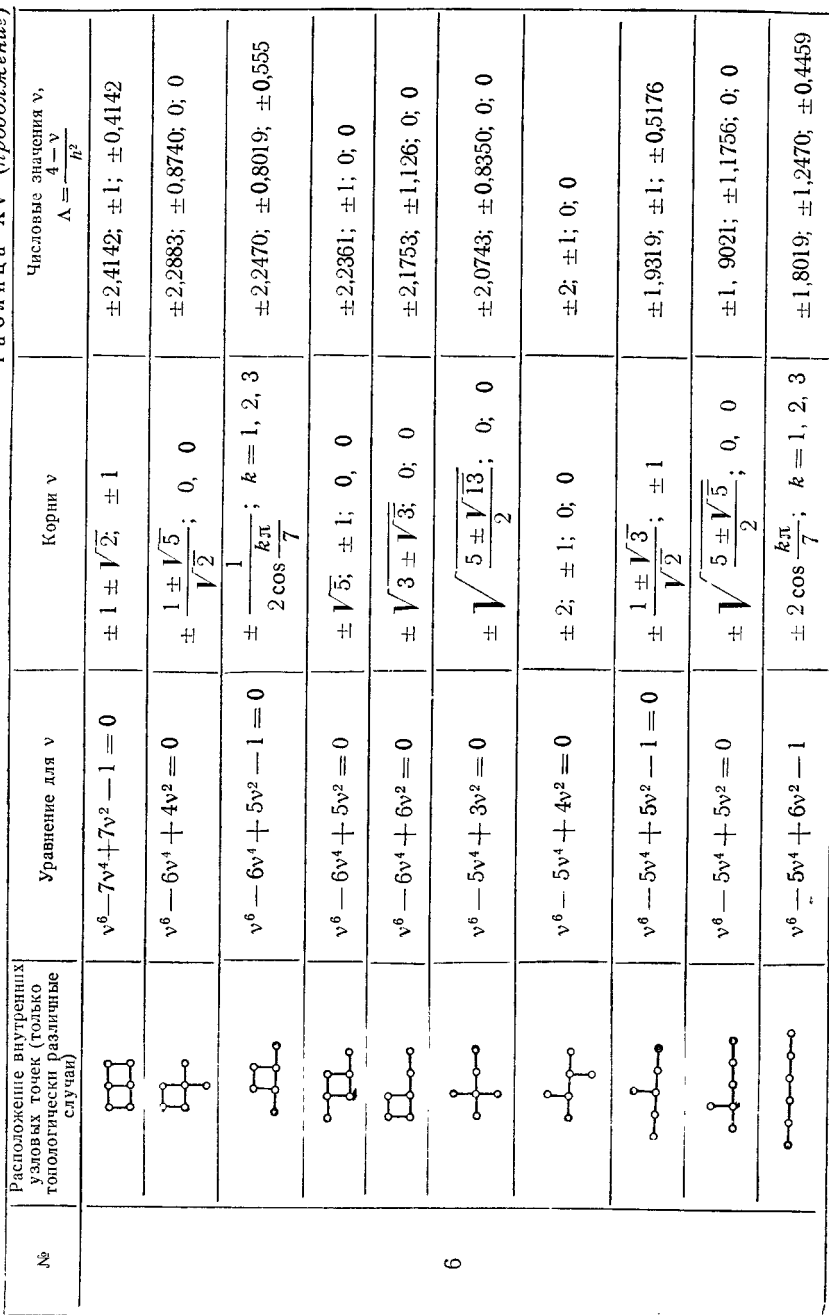 Таблица XV (продолжение)
№
Расположение внутренних
узловых точек (только
топологически различные
случаи)
Уравнение для ν
Корни ν
Числовые значения ν,
Λ = (4 − ν)/h²
6
ν⁶ — 7ν⁴ + 7ν² — 1 = 0
± 1 ± √2; ± 1
±2,4142; ±1; ±0,4142
ν⁶ — 6ν⁴ + 4ν² = 0
± (1 ± √5)/√2; 0, 0
±2,2883; ±0,8740; 0; 0
ν⁶ — 6ν⁴ + 5ν² — 1 = 0
± 1/(2 cos kπ/7); k = 1, 2, 3
±2,2470; ±0,8019; ±0,555
ν⁶ — 6ν⁴ + 5ν² = 0
± √5; ± 1; 0, 0
±2,2361; ±1; 0; 0
ν⁶ — 6ν⁴ + 6ν² = 0
± √(3 ± √3); 0; 0
±2,1753; ±1,126; 0; 0
ν⁶ — 5ν⁴ + 3ν² = 0
± √((5 ± √13)/2); 0; 0
±2,0743; ±0,8350; 0; 0
ν⁶ — 5ν⁴ + 4ν² = 0
± 2; ± 1; 0; 0
±2; ±1; 0; 0
ν⁶ — 5ν⁴ + 5ν² — 1 = 0
± (1 ± √3)/√2; ± 1
±1,9319; ±1; ±0,5176
ν⁶ — 5ν⁴ + 5ν² = 0
± √((5 ± √5)/2); 0, 0
±1, 9021; ±1,1756; 0; 0
ν⁶ — 5ν⁴ + 6ν² — 1
± 2 cos kπ/7; k = 1, 2, 3
±1,8019; ±1,2470; ±0,4459